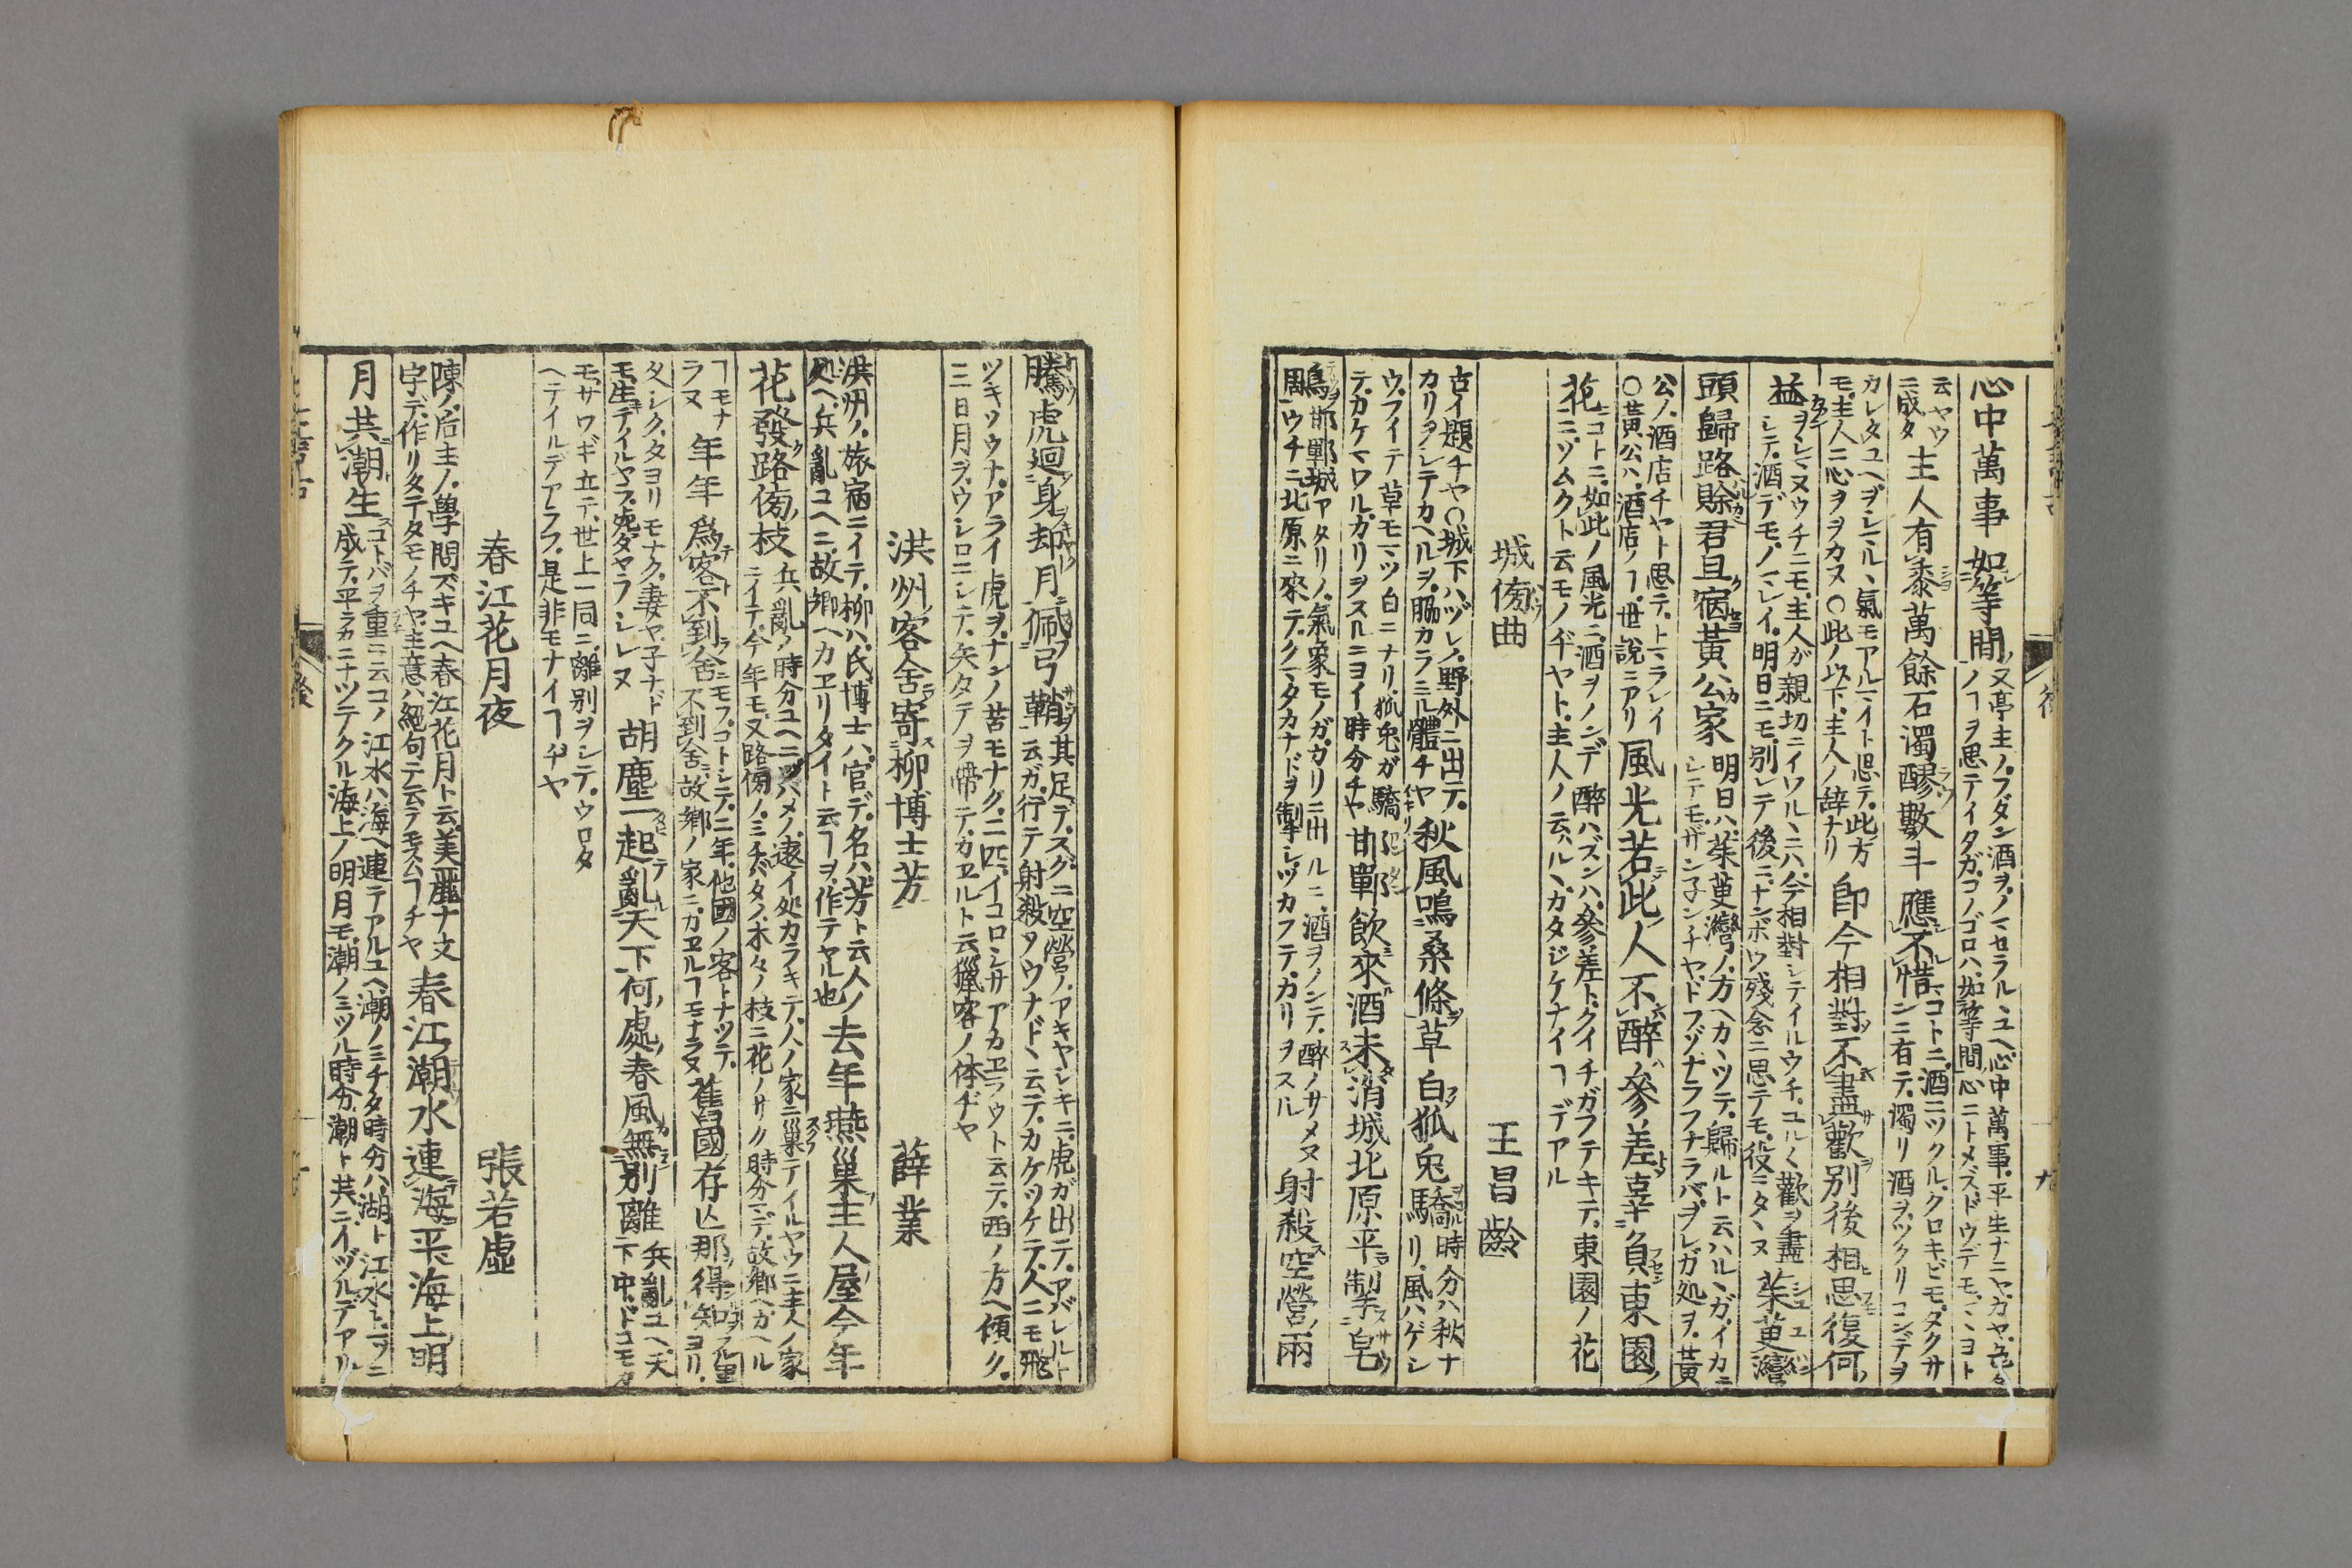 心中萬事如等閒
又亭主ノフダン酒ヲノマセラルヽユヘ心中萬事平生ナニヤカヤ色々
ノヿヲ思テイタガコノゴロハ如等閒心ニトメズドウデモマヽヨト
云ヤウ
ニ成タ
主人有黍萬餘石濁醪數斗應不惜
コトニ酒ニツクルクロキビモタクサ
ンニ有テ濁リ酒ヲツクリコンデヲ
カレタユヘヲシマルヽ氣モアルマイト思テ此方
モ主人ニ心ヲヲカヌ○此ノ以下主人ノ辞ナリ
即今相對不盡歡別後相思復何
益
主人が親切ニイワルヽニハ今相對シテイルウチユルく歡ヲ盡
シテ酒デモノマレイ明日ニモ別レテ後ニナンボウ殘念ニ思テモ役ニタヽヌ
茱萸灣
頭歸路賖君且宿黃公家
明日ハ茱萸灣ノ方ヘカヽツテ歸ルト云ハルヽガイカニ
シテモザンネンチヤドフゾナラフナラバヲレガ処ヲ黄
公ノ酒店チヤト思テトマラレイ
○黄公ハ酒店ノヿ世説ニアリ
風光若此人不醉參差辜負東園
花
コトニ如此ノ風光ニ酒ヲノンデ醉ハズンハ參差トクイチガフテキテ東園ノ花
ニソムクト云モノヂヤト主人ノ云ルヽカタジケナイヿデアル
城傍曲 王昌齡
古イ題チヤ○城下ハヅレノ野外ニ出テ
カリヲシテカヘルヲ脇カラミル體チヤ
秋風鳴桑條草白狐兔驕
時分ハ秋ナ
リ風ハゲシ
ウフイテ草モマツ白ニナリ狐兔ガ驕
テカケマワルガリヲスルニヨイ時分チヤ
邯鄲飲來酒未消城北原平掣皂
鵰
邯鄲城アタリノ氣象モノガガリニ出ルニ酒ヲノンテ醉ノサメヌ
ウチニ北原ニ來テクマタカナドヲ掣シツカフテカリヲスル
射殺空營兩
騰虎迴身却月佩弓鞘
其足デスグニ空營ノアキヤシキニ虎ガ出テアバレルト
云ガ行テ射殺タウナドヽ云テカケツケテ人ニモ飛
ツキソウナアライ虎ヲナンノ苦モナク二匹イコロシサアカヱラウト云テ西ノ方ヘ傾ク
三日月ヲウシロニシテ矢タテヲ帶テカヱルト云獵客ノ体ヂヤ
洪州客舍寄柳博士芳 薛業
洪州ノ旅宿ニイテ柳ハ氏博士ハ官デ名ハ芳ト云人ノ
処ヘ兵亂ユヘニ故郷ヘカヱリタイト云ヿヲ作テヤル也
去年燕巢主人屋今年
花發路傍枝
兵亂ノ時分ユヘニツバメノ遠イ処カラキテ人ノ家ニ巢テイルヤウニ主人ノ家
ニイテ今年モ又路傍ノミチバタノ木々ノ枝ニ花ノサク時分マデ故郷ヘカヘル
ヿモナ
ラヌ
年年爲客不到舍
モフコトシテ二年他國ノ客トナツテ
不到舍故郷ノ家ニカヱルヿモナラヌ
舊國存亡那得知
タシク タヨリモナク妻ヤ子ナド
モ生テイルヤラ死ダヤラシレヌ
胡塵一起亂天下何處春風無別離
兵亂ユヘ天
下中ドコモカ
モサワギ立テ世上一同ニ離別ヲシテウロタ
ヘテイルデアラフ是非モナイヿヂヤ
春江花月夜 張若虛
陳ノ后主ノ學問ズキユヘ春江花月ト云美麗ナ文
字デ作リタテタモノチヤ主意ハ絕句テ云テモスムヿチヤ
春江潮水連海平海上明
月共潮生
コトバヲ重ニ云コノ江水ハ海ヘ連テアルユヘ潮ノミチタ時分ハ潮ト江水ト一ツニ
成テ平ラカニナツテクル海上ノ明月モ潮ノミツル時分潮ト共ニイヅルデアル